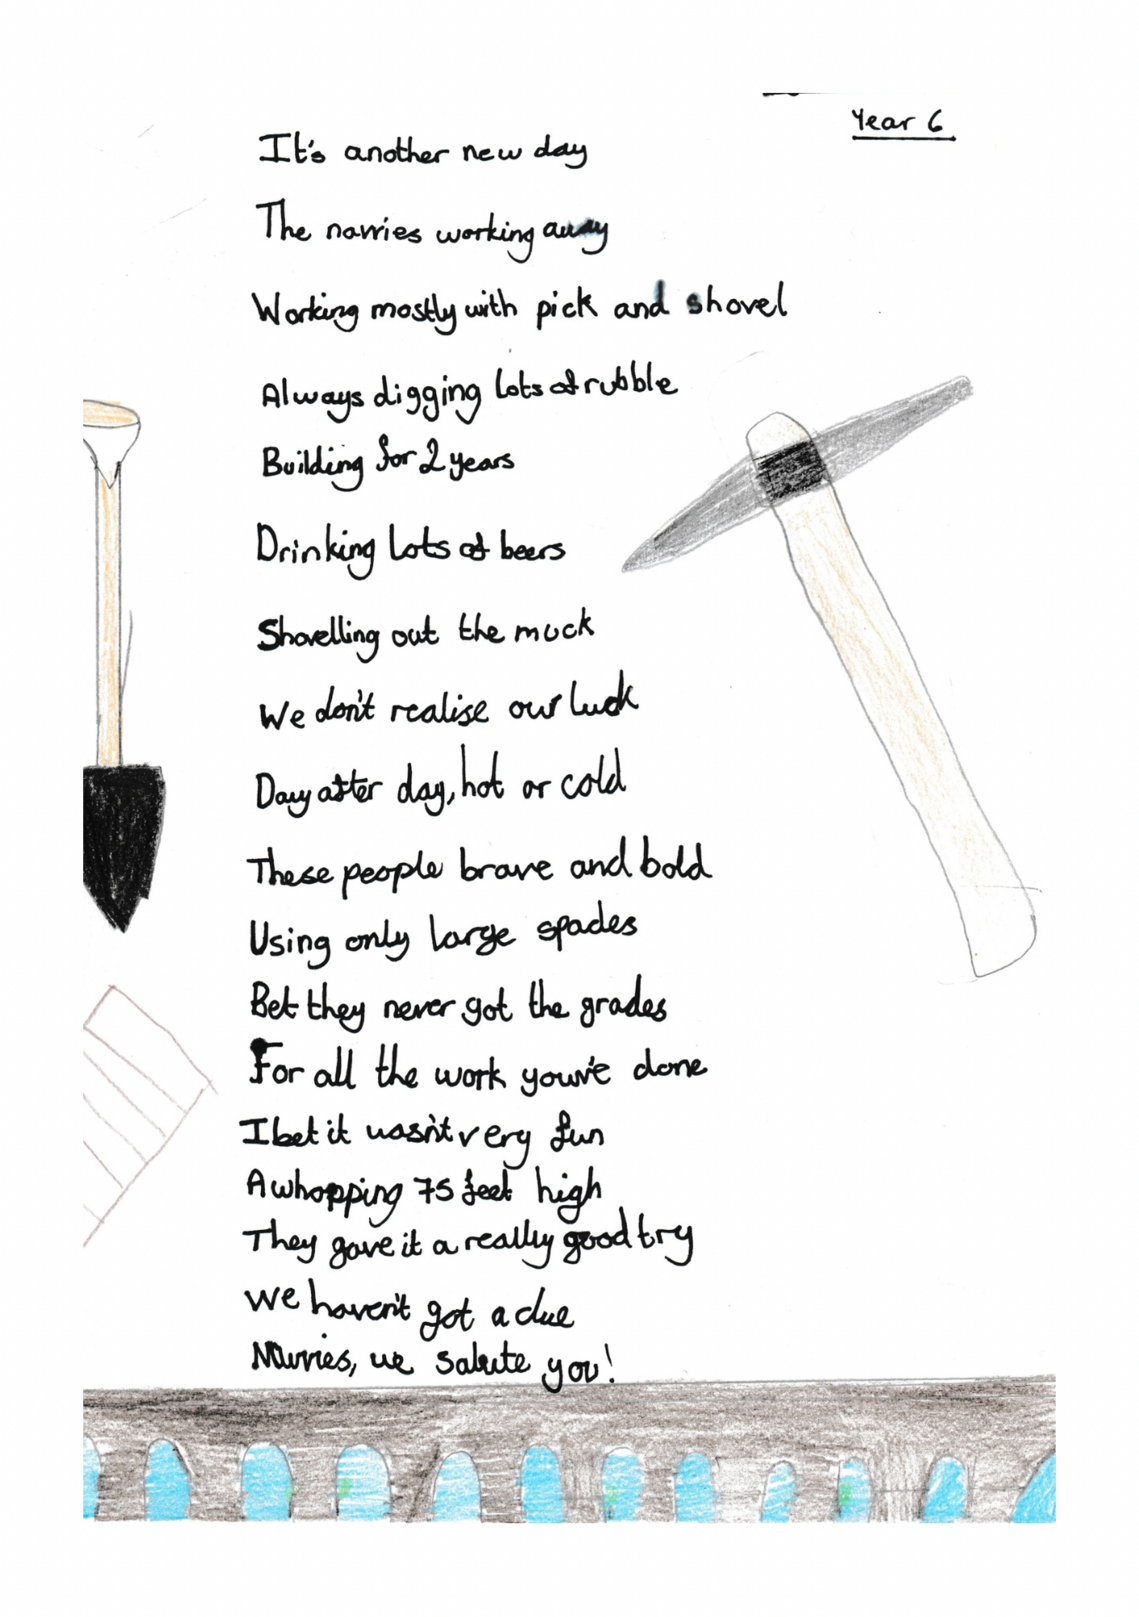 Year 6
It's another new day
The navvies working away
Working mostly with pick and shovel
Always digging lots of rubble
Building for 2 years
Drinking lots of beers
Shovelling out the muck
We don't realise our luck
Day after day, hot or cold
These people brave and bold
Using only large spades
Bet they never got the grades
For all the work youv'e done
I bet it wasn't very fun
A whopping 75 feet high
They gave it a really good try
We haven't got a clue
Navvies, we salute you!